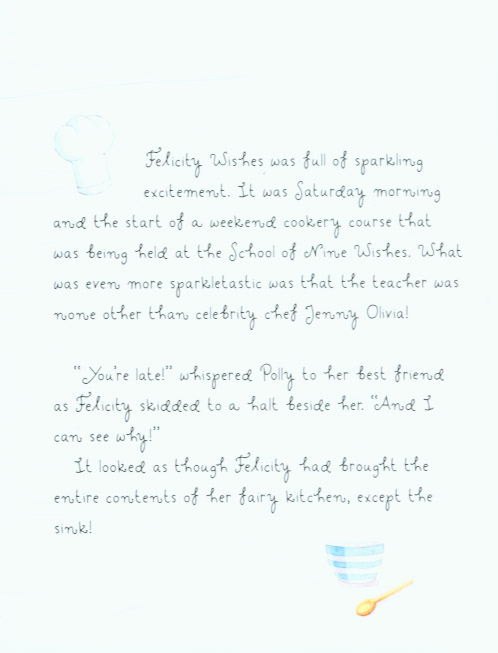 Felicity Wishes was full of sparkling
excitement. It was Saturday morning
and the start of a weekend cookery course that
was being held at the School of Nine Wishes. What
was even more sparkletastic was that the teacher was
none other than celebrity chef Jenny Olivia!
“You’re late!” whispered Polly to her best friend
as Felicity skidded to a halt beside her. “And I
can see why!”
It looked as though Felicity had brought the
entire contents of her fairy kitchen, except the
sink!